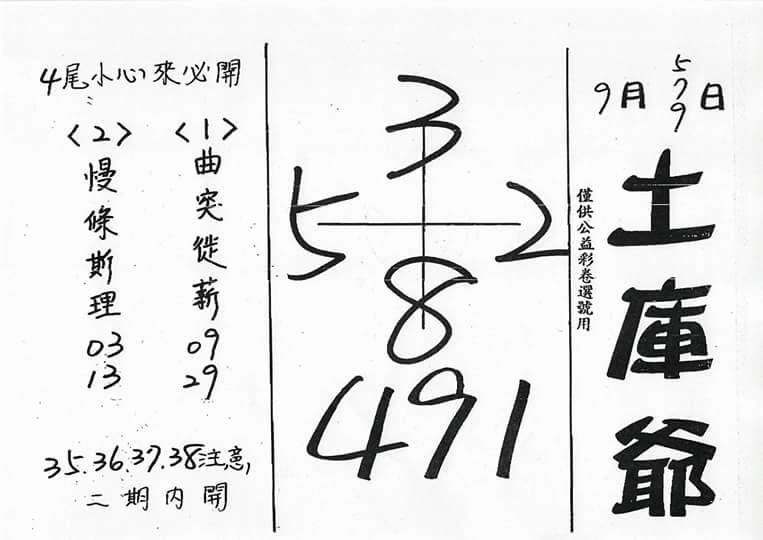 9月5 7 9日
土庫爺
僅供公益彩卷選號用
3
5 2
8
491
4尾小心來必開
〈1〉
曲突徙薪
09
29
〈2〉
慢條斯理
03
13
35.36.37.38注意,
二期內開